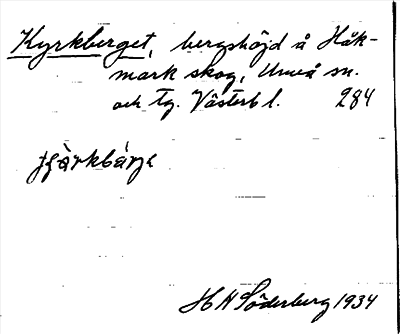 Kyrkberget, bergshöjd å Håk-
mark skog, Umeå sn.
och tg. Västerb l. 284
H A Söderberg 1934